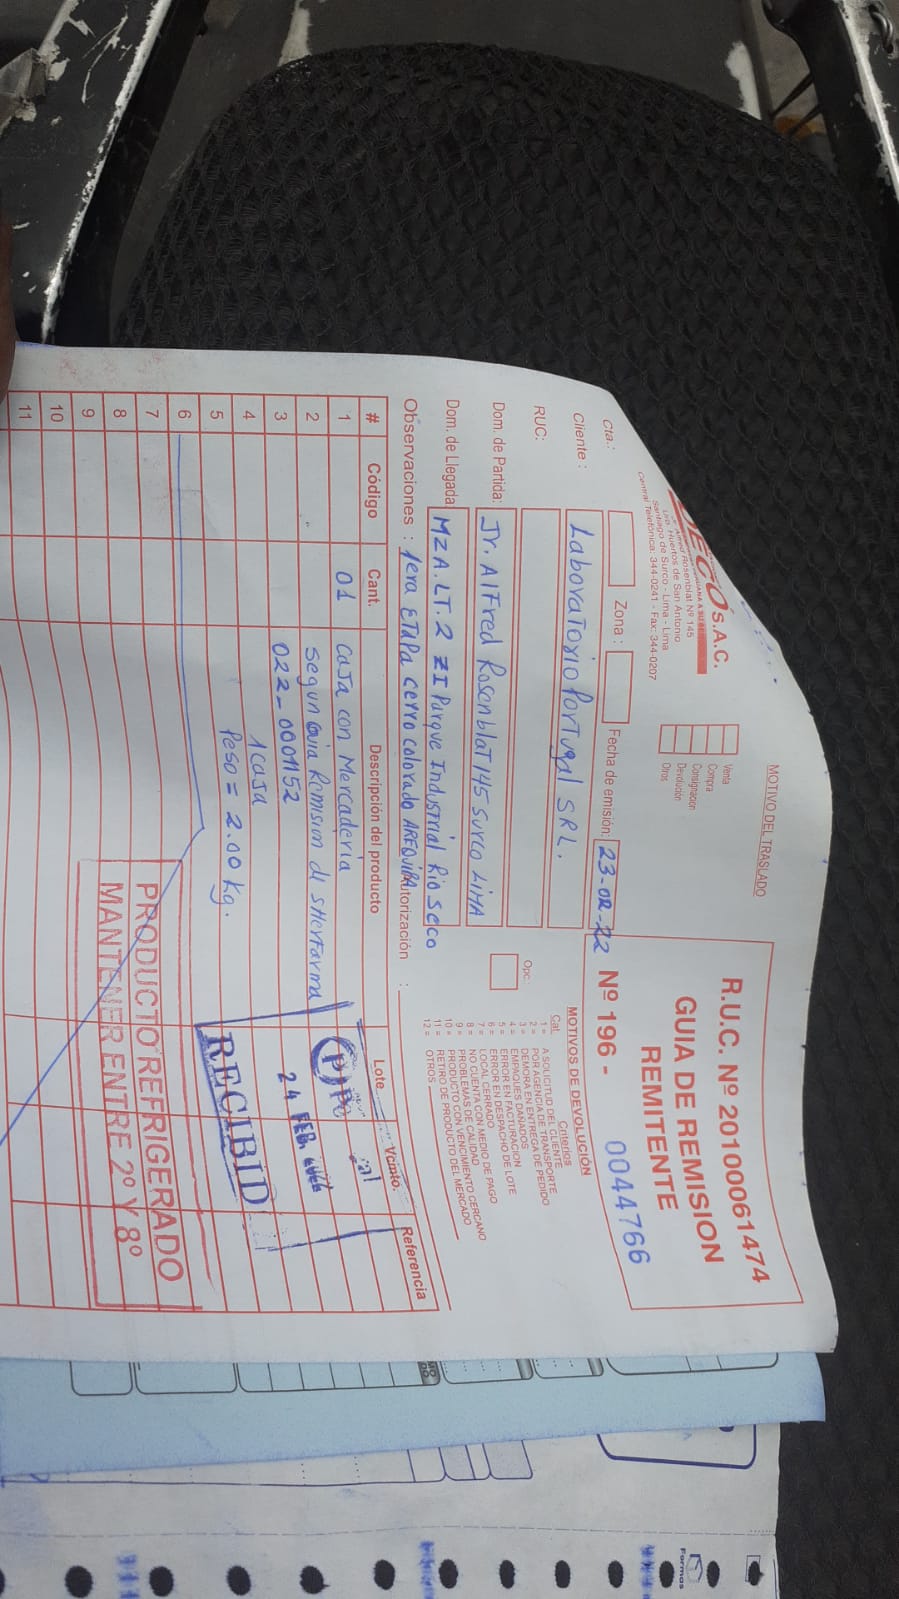 DECO S.A.C.
Alfred Rosenblat Nº 145
Urb. Huertos de San Antonio
Santiago de Surco - Lima - Lima
Central Telefónica: 344-0241 - Fax: 344-0207
MOTIVO DEL TRASLADO
Venta
Compra
Consignación
Devolución
Otros
R.U.C. Nº 20100061474
GUIA DE REMISION
REMITENTE
Nº 196 - 0044766
Cta.: Zona: Fecha de emisión: 23-02-22
Cliente: Laboratorio Portugal SRL.
RUC:
Dom. de Partida: Jr. Alfred Rosenblat 145 Surco Lima
Dom. de Llegada: MZ A. LT. 2 ZI Parque Industrial Rio Seco
Observaciones: 1era Etapa cerro colorado AREQUIPA Autorización :
Opc.:
MOTIVOS DE DEVOLUCIÓN
Cat. Criterios
1 = A SOLICITUD DEL CLIENTE
2 = POR AGENCIA DE TRANSPORTE
3 = DEMORA EN ENTREGA DE PEDIDO
4 = EMPAQUES DAÑADOS
5 = ERROR EN FACTURACION
6 = ERROR EN DESPACHO DE LOTE
7 = LOCAL CERRADO
8 = NO CUENTA CON MEDIO DE PAGO
9 = PROBLEMAS DE CALIDAD
10 = PRODUCTO CON VENCIMIENTO CERCANO
11 = RETIRO DE PRODUCTO DEL MERCADO
12 = OTROS
# Código Cant. Descripción del producto Lote Vcmto. Referencia
1 01 Caja con Mercaderia
2 segun Guia Remision di sherfarma
3 022-0001152
4 1 caja
5 Peso = 2.00 kg.
6
7
8
9
10
11
24 FEB.
RECIBID
PRODUCTO REFRIGERADO
MANTENER ENTRE 2º Y 8º
Formas